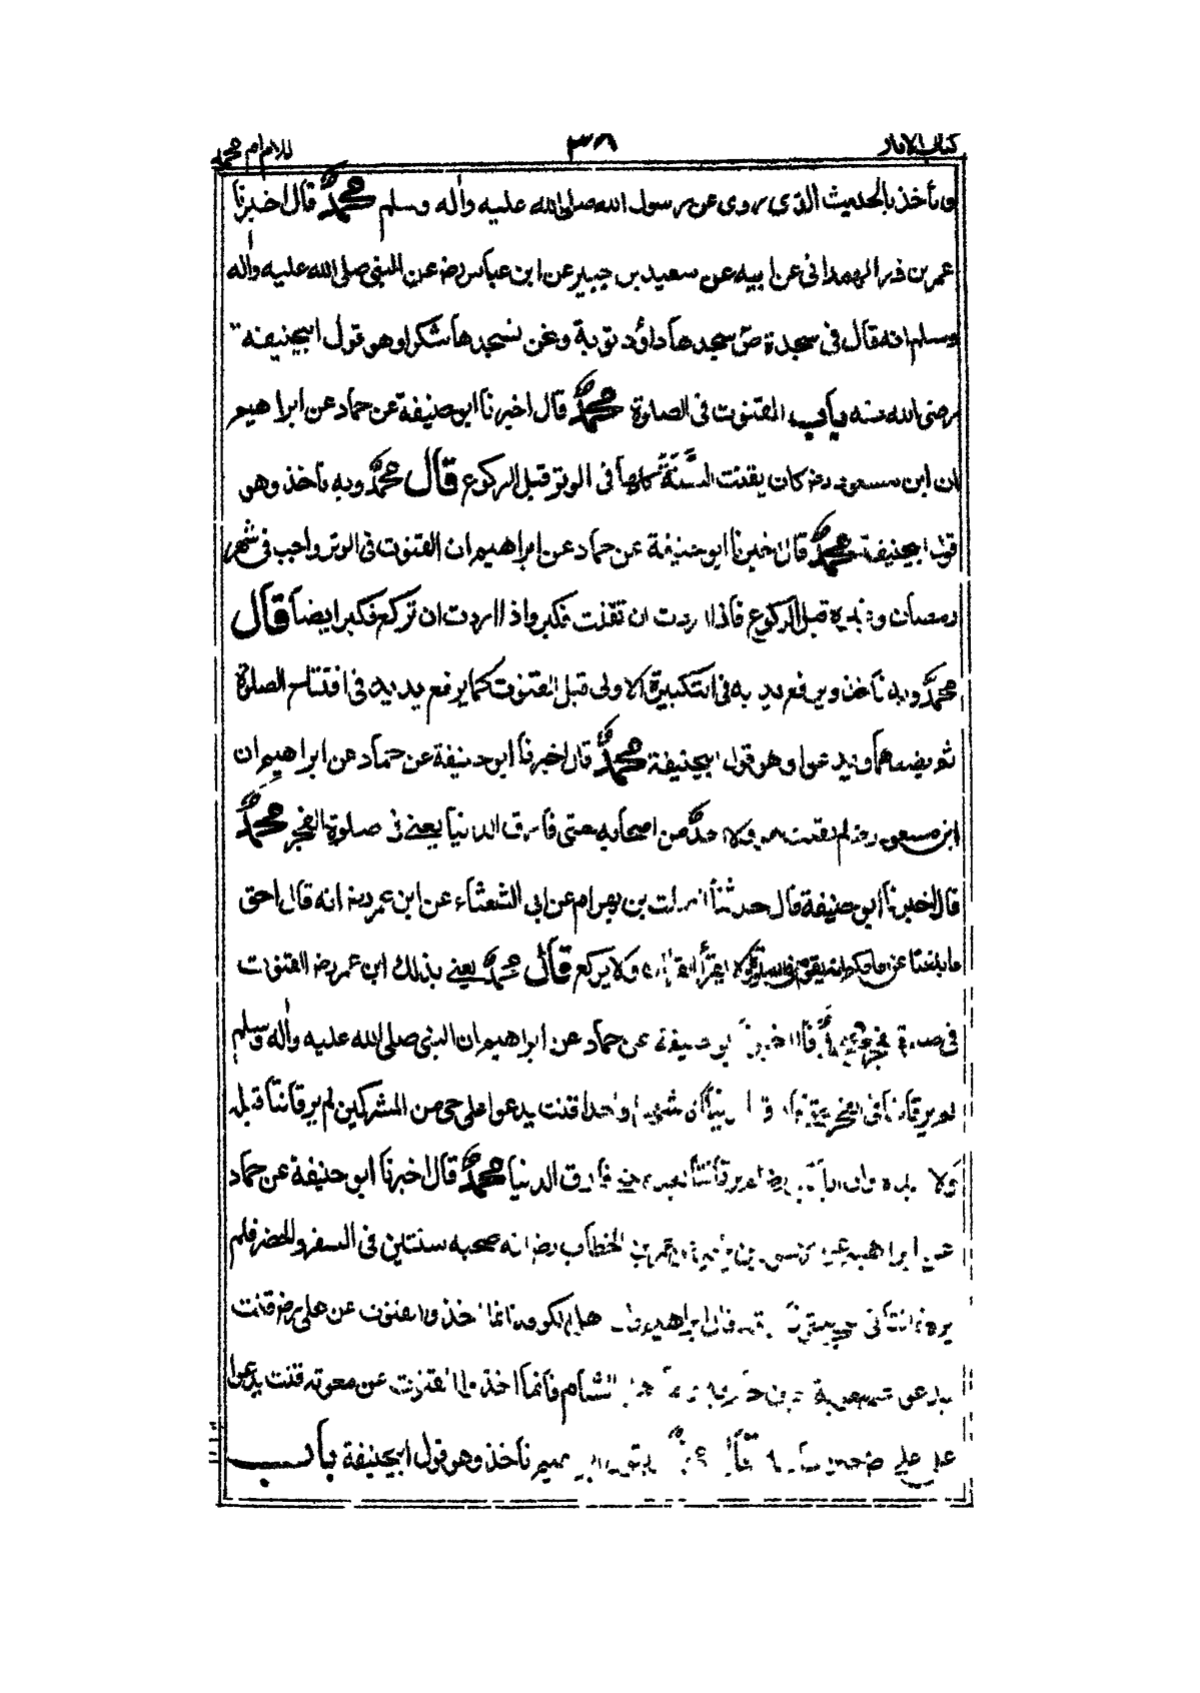 كتاب الآثار ٣٨ للامام محمد
ونأخذ بالحديث الذى روى عن رسول الله صلى الله عليه واٰله وسلم محمدٌ قال اخبرنا
عمر بن ذر الهمدانى عن ابيه عن سعيد بن جبير عن ابن عباس رض عن النبى صلى الله عليه واٰله
وسلم انه قال فى سجدة صٓ سجدها داؤد توبة ونحن نسجدها شكرا وهو قول ابيحنيفة
رضى الله عنه باب القنوت فى الصلوة محمدٌ قال اخبرنا ابو حنيفة عن حماد عن ابراهيم
ان ابن مسعود رض كان يقنت السَّنَةَ كلها فى الوتر قبل الركوع قال محمدٌ وبه نأخذ وهو
قول ابيحنيفة محمدٌ قال اخبرنا ابو حنيفة عن حماد عن ابراهيم ان القنوت فى الوتر واجب فى شهر
رمضان وغيره قبل الركوع فاذا اردت ان تقنت فكبر واذا اردت ان تركع فكبر ايضا قال
محمدٌ وبه نأخذ ويرفع يديه فى التكبيرة الاولى قبل القنوت كما يرفع يديه فى افتتاح الصلوة
ثم يضعهما ويدعوا وهو قول ابيحنيفة محمدٌ قال اخبرنا ابو حنيفة عن حماد عن ابراهيم ان
ابن مسعود رض لم يقنت هو ولا احد من اصحابه حتى فارق الدنيا يعنى فى صلوة الفجر محمدٌ
قال اخبرنا ابو حنيفة قال حدثنا الصلت بن بهرام عن ابى الشعثاء عن ابن عمر رض انه قال احق
ما بلغنا عن امامكم انه يقوم فى الصلوة لا يقرأ القرآن ولا يركع قال محمدٌ يعنى بذلك ابن عمر رض القنوت
فى صلوة الفجر محمدٌ قال اخبرنا ابو حنيفة عن حماد عن ابراهيم ان النبى صلى الله عليه واٰله وسلم
لم ير قانتا فى الفجر حتى فارق الدنيا الا شهرا واحدا قنت يدعوا على حى من المشركين لم ير قانتا قبله
ولا بعده وان ابا بكر رض لم ير قانتا بعده حتى فارق الدنيا محمدٌ قال اخبرنا ابو حنيفة عن حماد
عن ابراهيم عن الاسود بن يزيد عن عمر بن الخطاب رض انه صحبه سنتين فى السفر والحضر فلم
يره قانتا فى الفجر حتى فارقه قال ابراهيم وان اهل الكوفة انما اخذوا القنوت عن على رض قنت
يدعوا على معوية حين حاربه واما اهل الشام فانما اخذوا القنوت عن معوية قنت يدعوا
على على رض حين حاربه قال محمدٌ وبقول ابراهيم نأخذ وهو قول ابيحنيفة باب